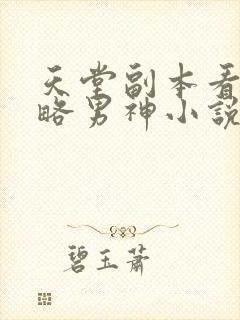 天堂副本看
略男神小說
碧玉蕭